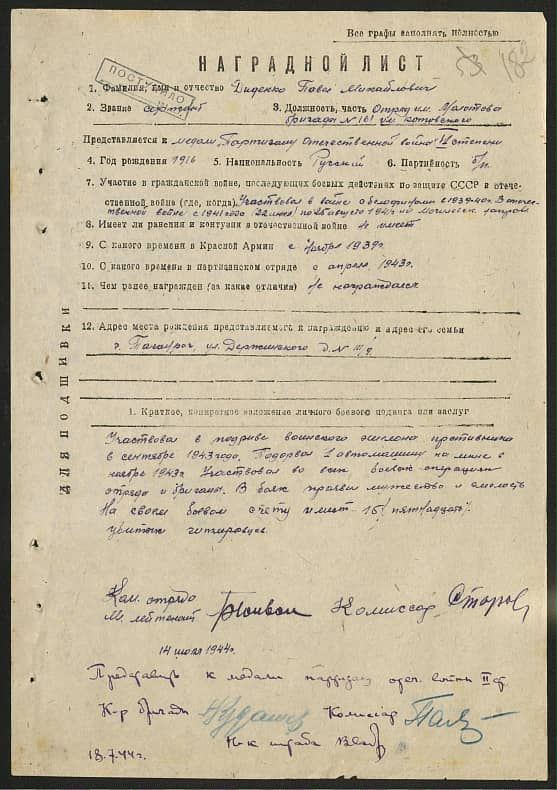 Все графы заполнять полностью
182
НАГРАДНОЙ ЛИСТ
ПОСТУПИЛО
1. Фамилия, имя и отчество Диденко Павел Михайлович
2. Звание сержант 3. Должность, часть Отряд им. Молотова
бригада № 161 им Котовского
Представляется к медали „Партизану Отечественной войны" II степени
4. Год рождения 1916 5. Национальность Русский 6. Партийность б/п
7. Участие в гражданской войне, последующих боевых действиях по защите СССР и отече-
ственной войне (где, когда) Участвовал в войне с белофинами с 1939-40г. В отече-
ственной войне с 1941 года (22 июня) по 25 августа 1941
8. Имеет ли ранения и контузии в отечественной войне Не имеет
9. С какого времени в Красной Армии с ноября 1939г.
10. С какого времени в партизанском отряде с апреля 1943г.
11. Чем ранее награжден (за какие отличия) Не награждался
12. Адрес места рождения представляемого к награждению и адрес его семьи
г. Таганрог, ул. Держинского д. №
ДЛЯ ПОДШИВКИ
1. Краткое, конкретное изложение личного боевого подвига или заслуг
Участвовал в подрыве воинского эшелона противника
в сентябре 1943 года. Подорвал 1 автомашину на мине в
ноябре 1943г Участвовал во всех боевых операциях
отряда и бригады. В боях проявил мужество и смелость
На своем боевом счету имеет 15 (пятнадцать)
убитых гитлеровцев.
Ком. отряда
Мл. лейтенант Комиссар
14 июля 1944г.
Представить к медали партизану отеч. войны II ст.
К-р бригады Комиссар
Н-к штаба
18.7.44г.